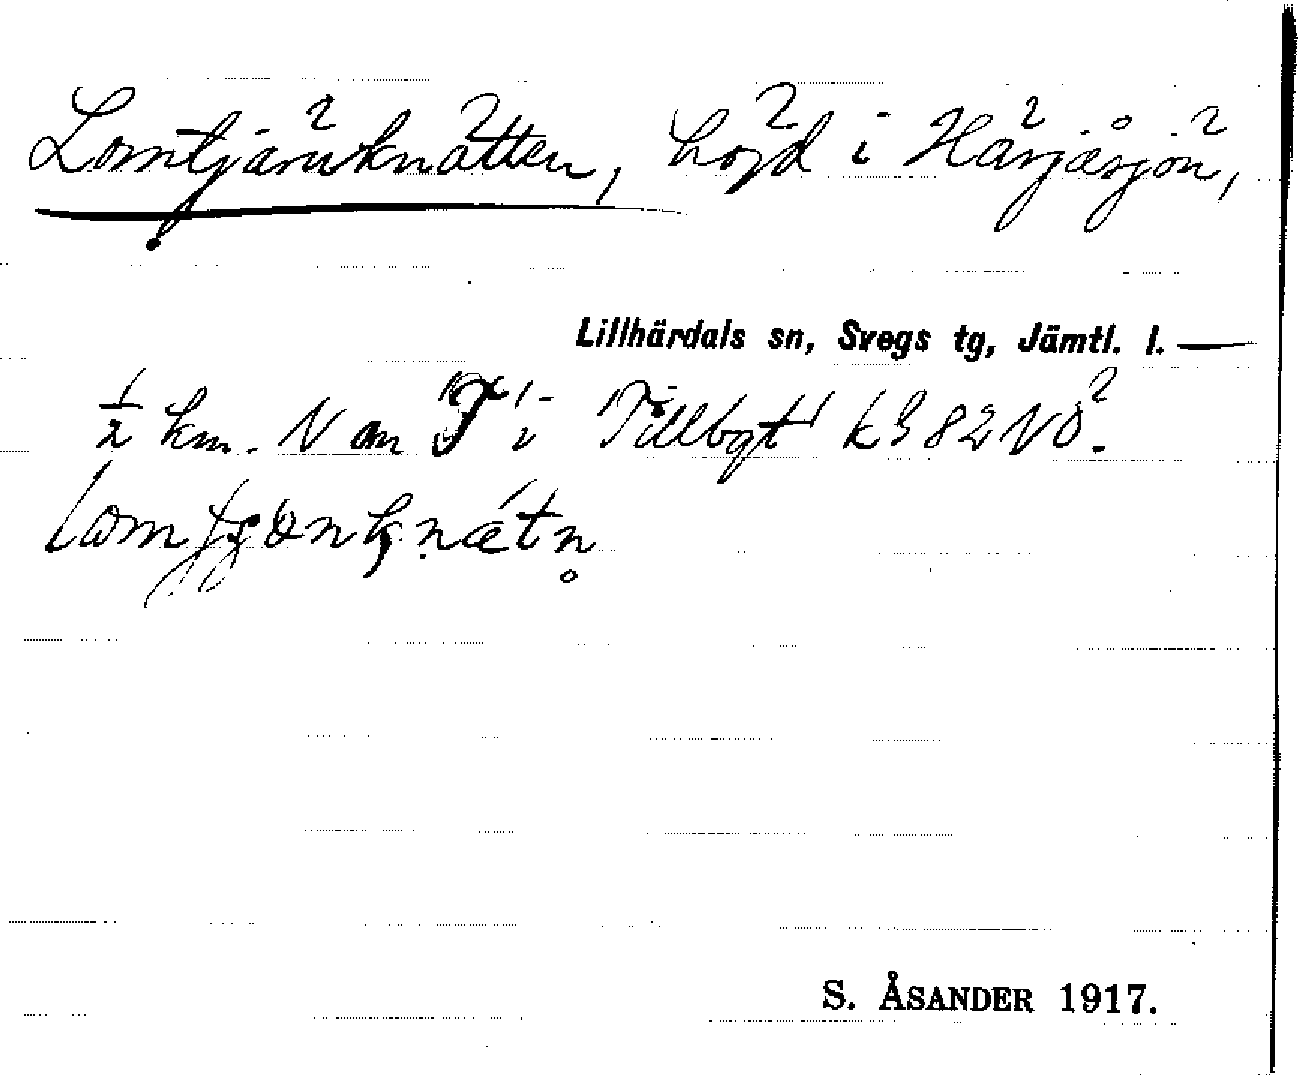 Lomtjärnknätten, höjd i Härjåsjön,
Lillhärdals sn, Svegs tg, Jämtl. l.
½ km. N om T i Tillbgt kg 82 NÖ.
S. ÅSANDER 1917.